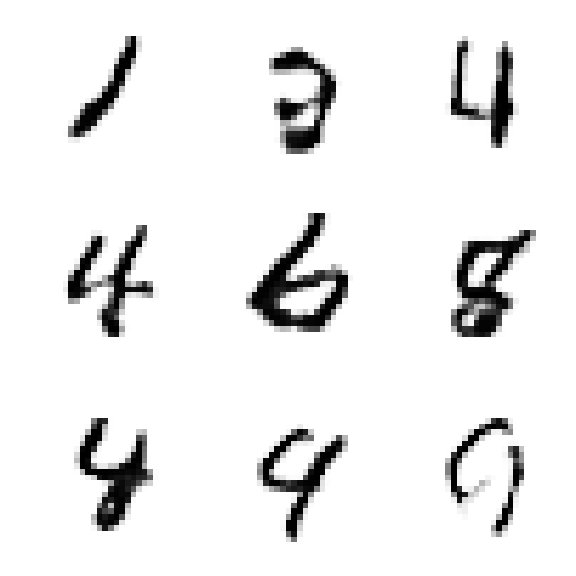 1 3 4
4 6 8
4 9 9